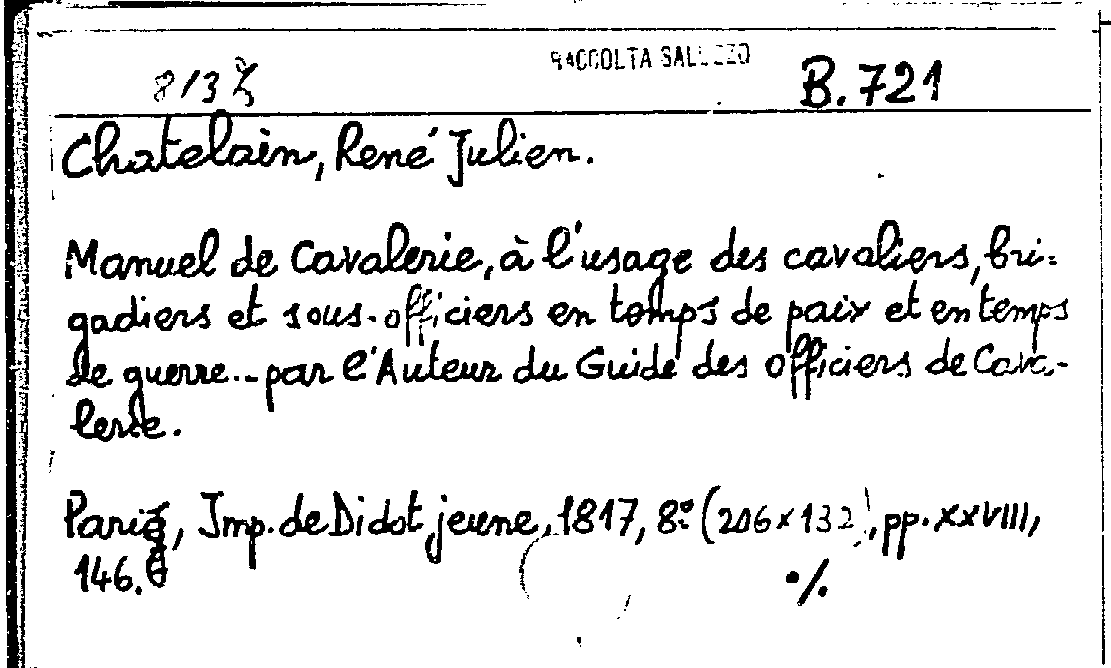 RACCOLTA
B.721
Chatelain, René Julien.
Manuel de Cavalerie, à l'usage des cavaliers, bri=
gadiers et sous-officiers en temps de paix et en temps
de guerre...par l'Auteur du Guide des officiers de Cava-
lerie.
Paris, Imp. de Didot jeune, 1817, 8º (206×132), pp. XXVIII,
146.
./.